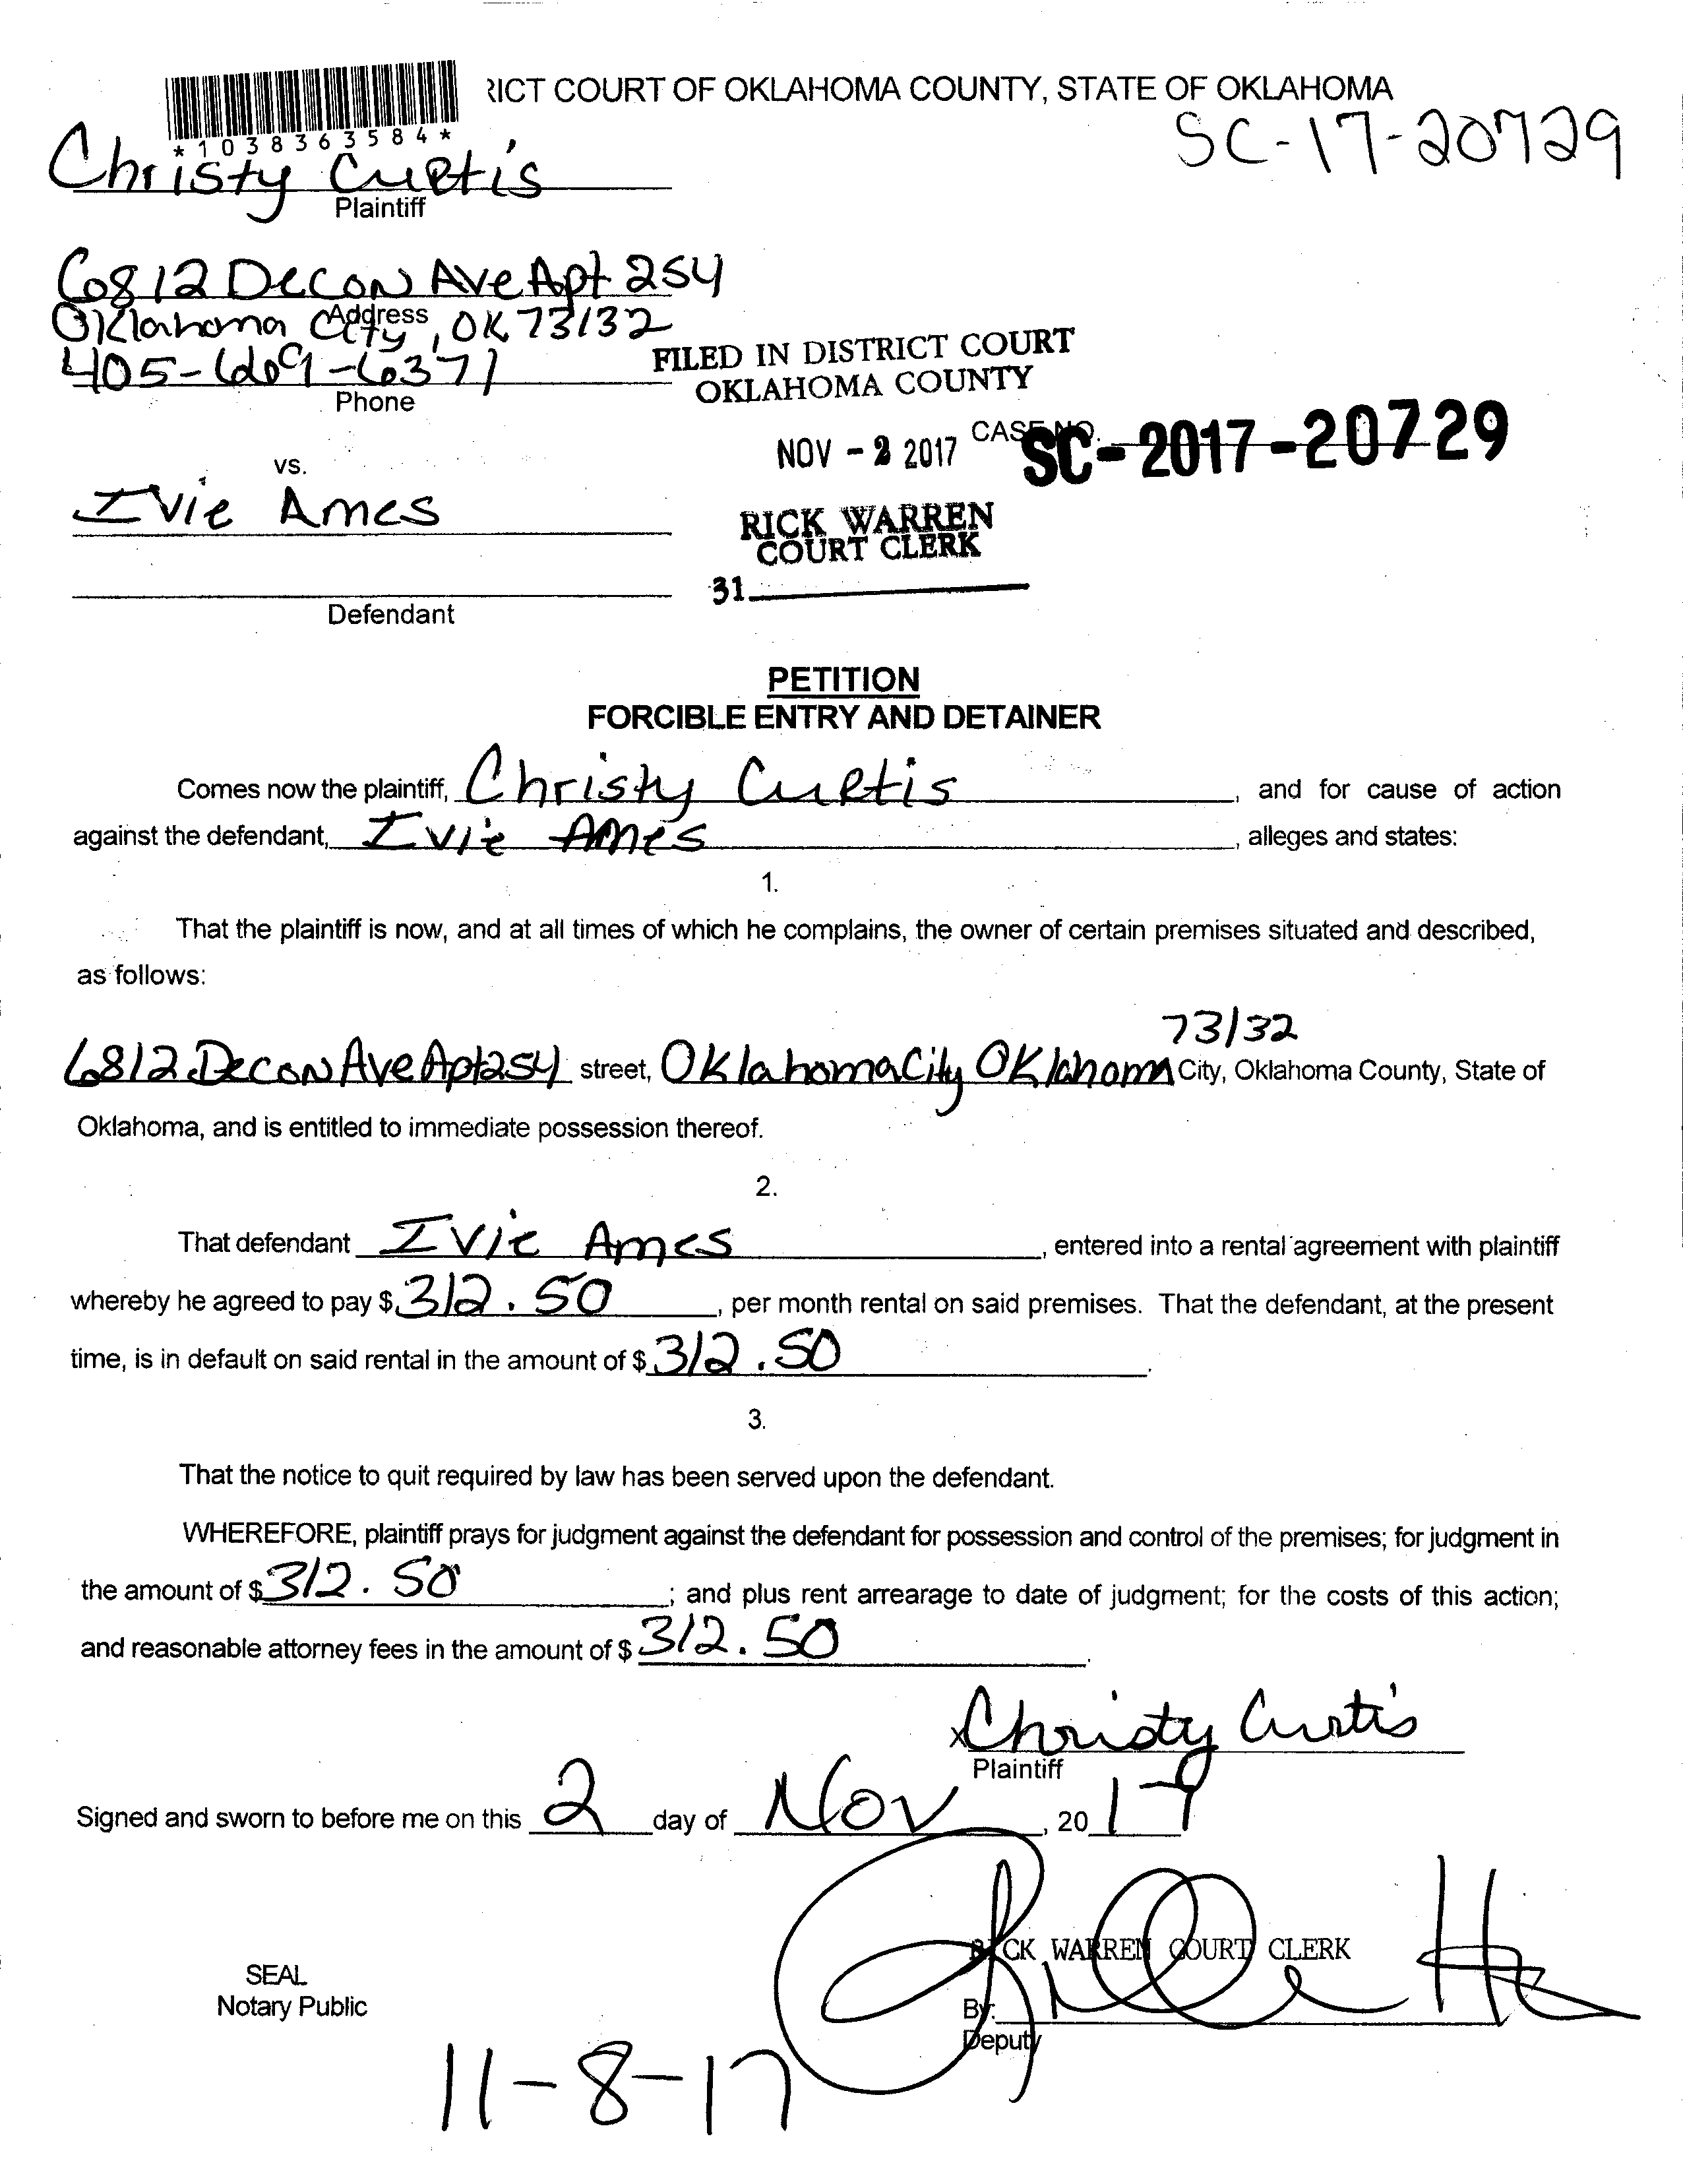 RICT COURT OF OKLAHOMA COUNTY, STATE OF OKLAHOMA
*1038363584*
SC-17-20729
Christy Curtis
Plaintiff
6812 Decon Ave Apt 254
Address
Oklahoma City, OK 73132
405-609-6371
Phone
FILED IN DISTRICT COURT
OKLAHOMA COUNTY
NOV - 2 2017
CASE NO.
SC-2017-20729
vs.
Ivie Ames
RICK WARREN
COURT CLERK
31
Defendant
PETITION
FORCIBLE ENTRY AND DETAINER
Comes now the plaintiff, Christy Curtis, and for cause of action
against the defendant, Ivie Ames, alleges and states:
1.
That the plaintiff is now, and at all times of which he complains, the owner of certain premises situated and described,
as follows:
73132
6812 Decon Ave Apt 254 street, Oklahoma City Oklahoma City, Oklahoma County, State of
Oklahoma, and is entitled to immediate possession thereof.
2.
That defendant Ivie Ames, entered into a rental agreement with plaintiff
whereby he agreed to pay $ 312.50, per month rental on said premises. That the defendant, at the present
time, is in default on said rental in the amount of $ 312.50.
3.
That the notice to quit required by law has been served upon the defendant.
WHEREFORE, plaintiff prays for judgment against the defendant for possession and control of the premises; for judgment in
the amount of $ 312.50; and plus rent arrearage to date of judgment; for the costs of this action;
and reasonable attorney fees in the amount of $ 312.50.
x Christy Curtis
Plaintiff
Signed and sworn to before me on this 2 day of Nov, 20 17
RICK WARREN COURT CLERK
SEAL
Notary Public
By:
Deputy
11-8-17